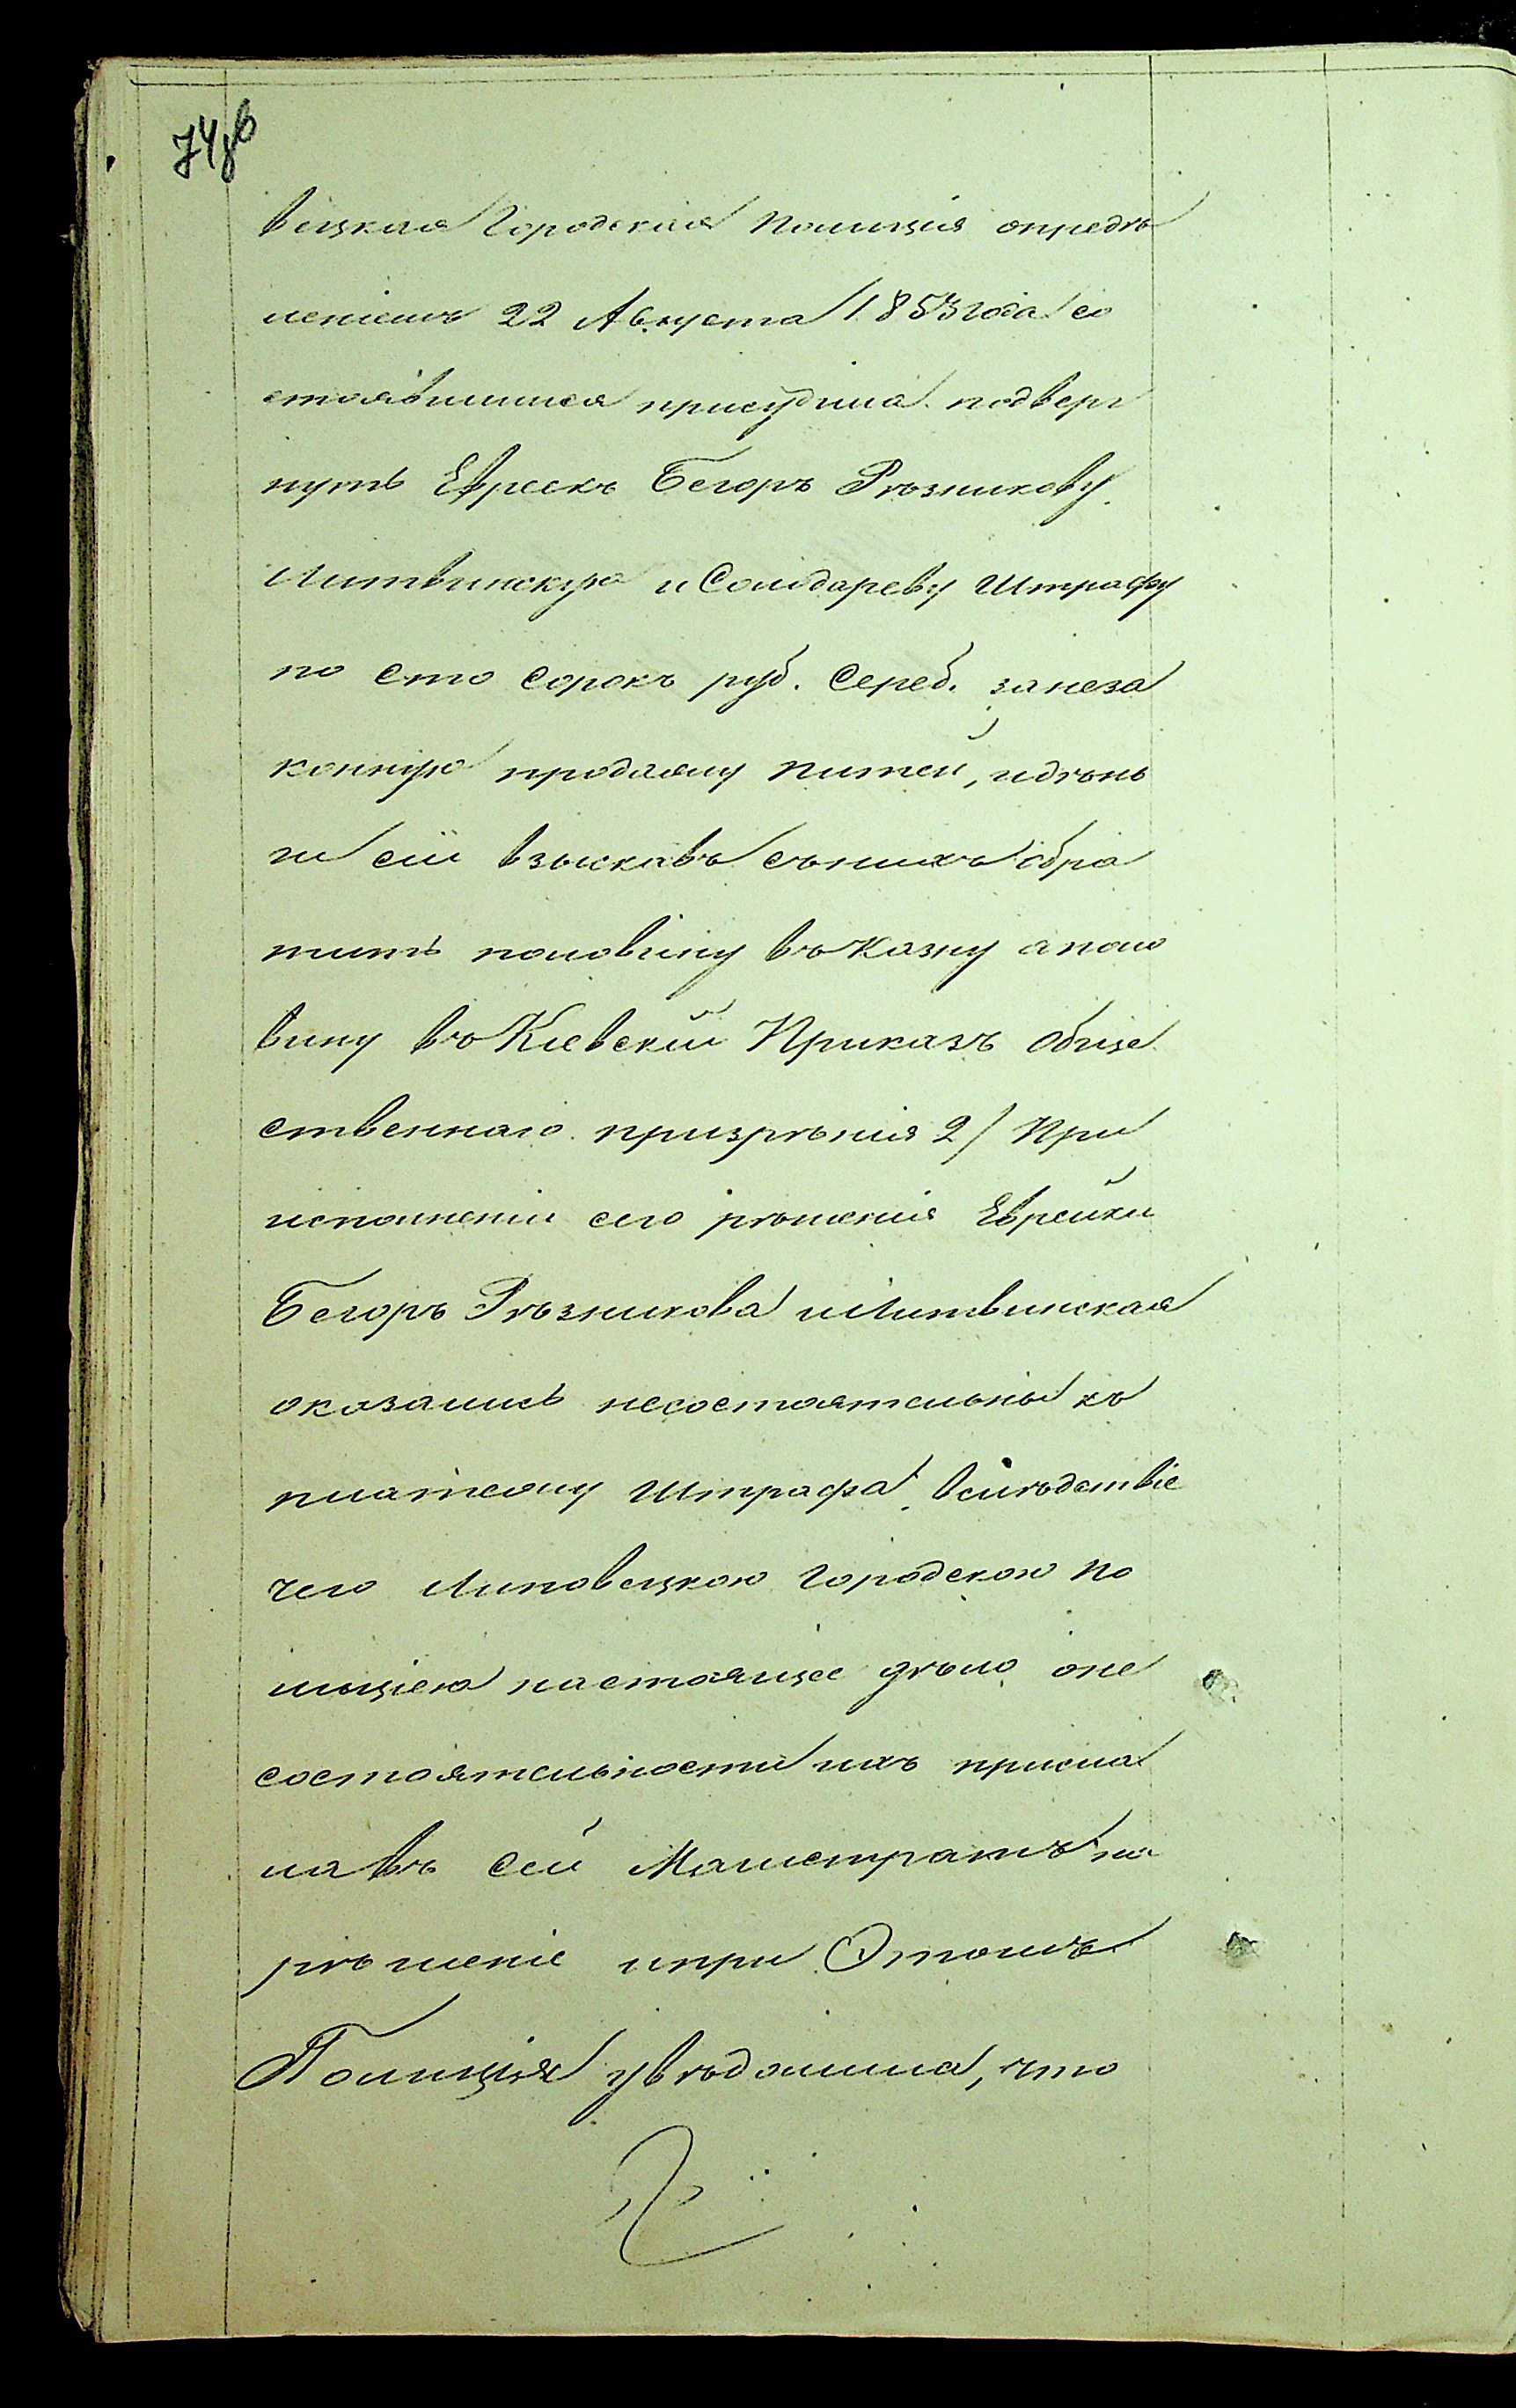 74об
вецкая Городская Полиція опредѣ
леніемъ 22 Августа 1853 года со
стоявшимся присудила подверг
нуть Евреекъ Бегоръ Рѣзникову
Литвинскую и Солидареву Штрафу
по сто сорокъ руб. Сереб. за неза
конную продажу питей, и день
ги сіи взыскавъ съ нихъ обра
тить половину въ Казну а поло
вину въ Кіевскій Приказъ обще
ственнаго призрѣнія 2/ При
исполненіи сего рѣшенія Еврейки
Бегоръ Рѣзникова и Литвинская
оказались несостоятельны къ
платежу Штрафа, вслѣдствіе
чего Липовецкою Городскою По
лиціею настоящее дѣло о не
состоятельности ихъ присла
на въ сей Магистратъ на
рѣшеніе и при Этомъ
Полиція увѣдомила, что